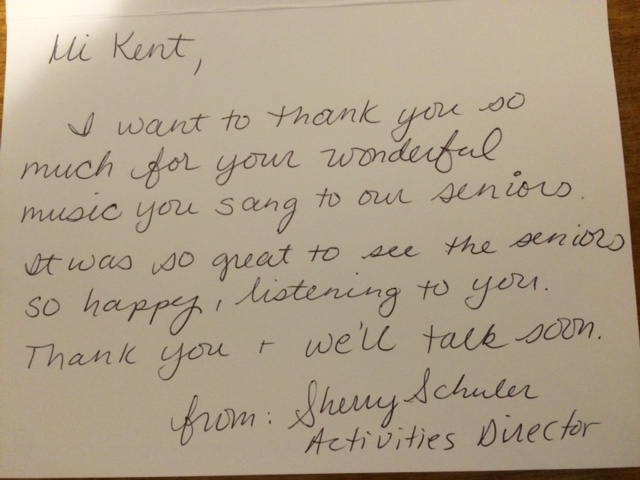 Hi Kent,
I want to thank you so
much for your wonderful
music you sang to our seniors.
It was so great to see the seniors
so happy, listening to you.
Thank you + we'll talk soon.
from: Sherry Schuler
Activities Director